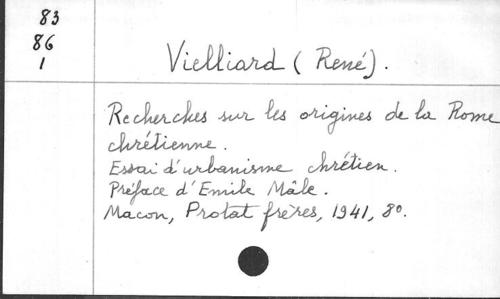 83
86
1
Vielliard (René).
Recherches sur les origines de la Rome
chrétienne.
Essai d'urbanisme chrétien.
Préface d'Emile Mâle.
Macon, Protat frères, 1941, 8º.